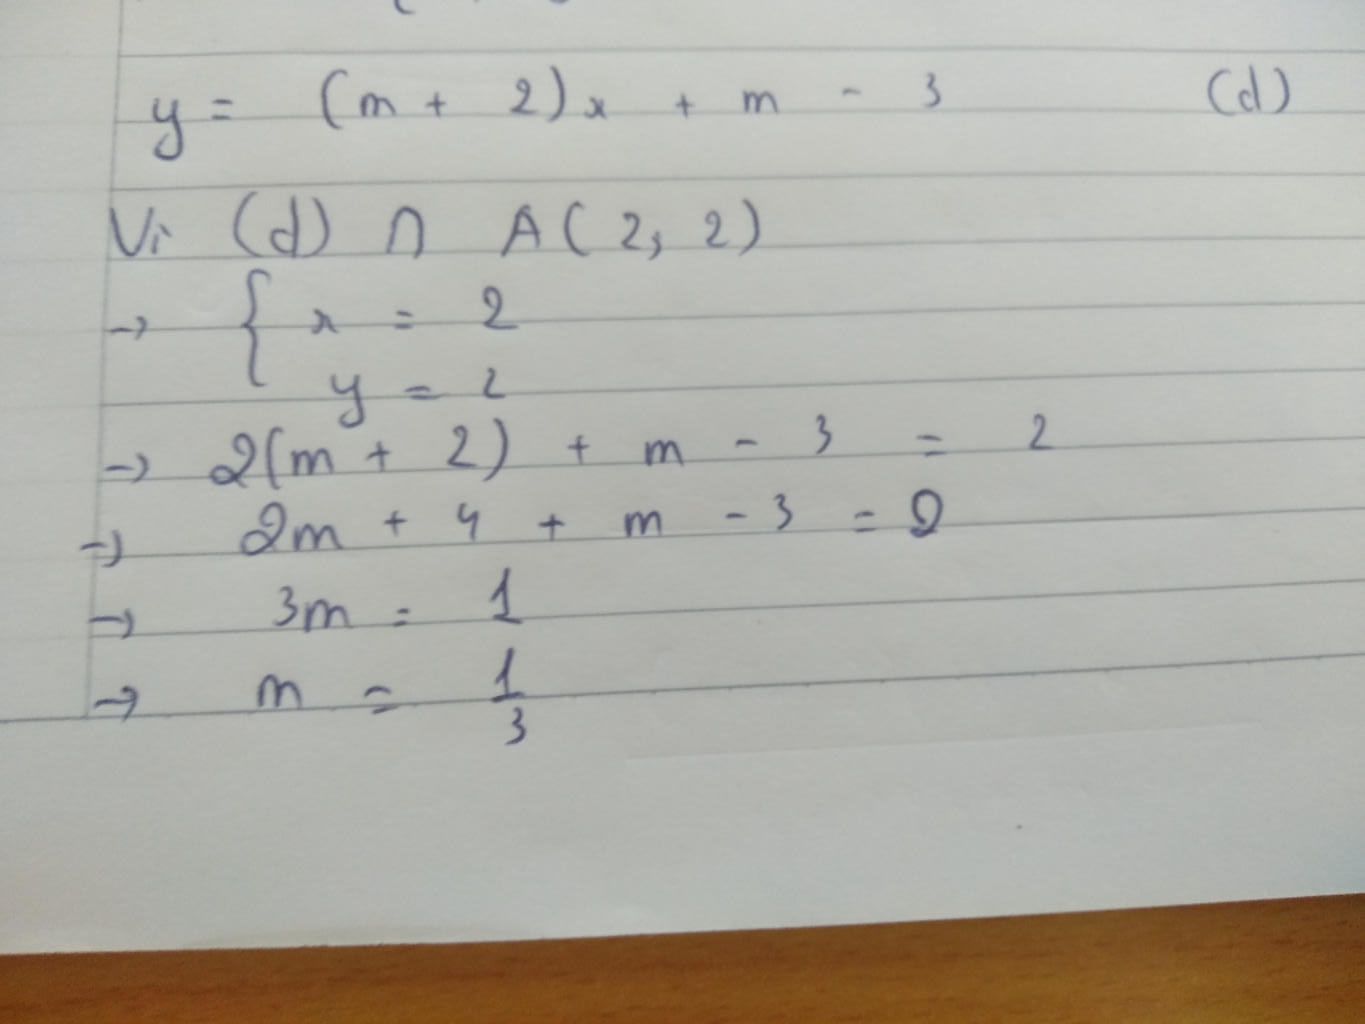 y = (m + 2)x + m - 3 (d)
Vì (d) ∩ A(2, 2)
→ { x = 2
y = 2
→ 2(m + 2) + m - 3 = 2
→ 2m + 4 + m - 3 = 2
→ 3m = 1
→ m = 1/3